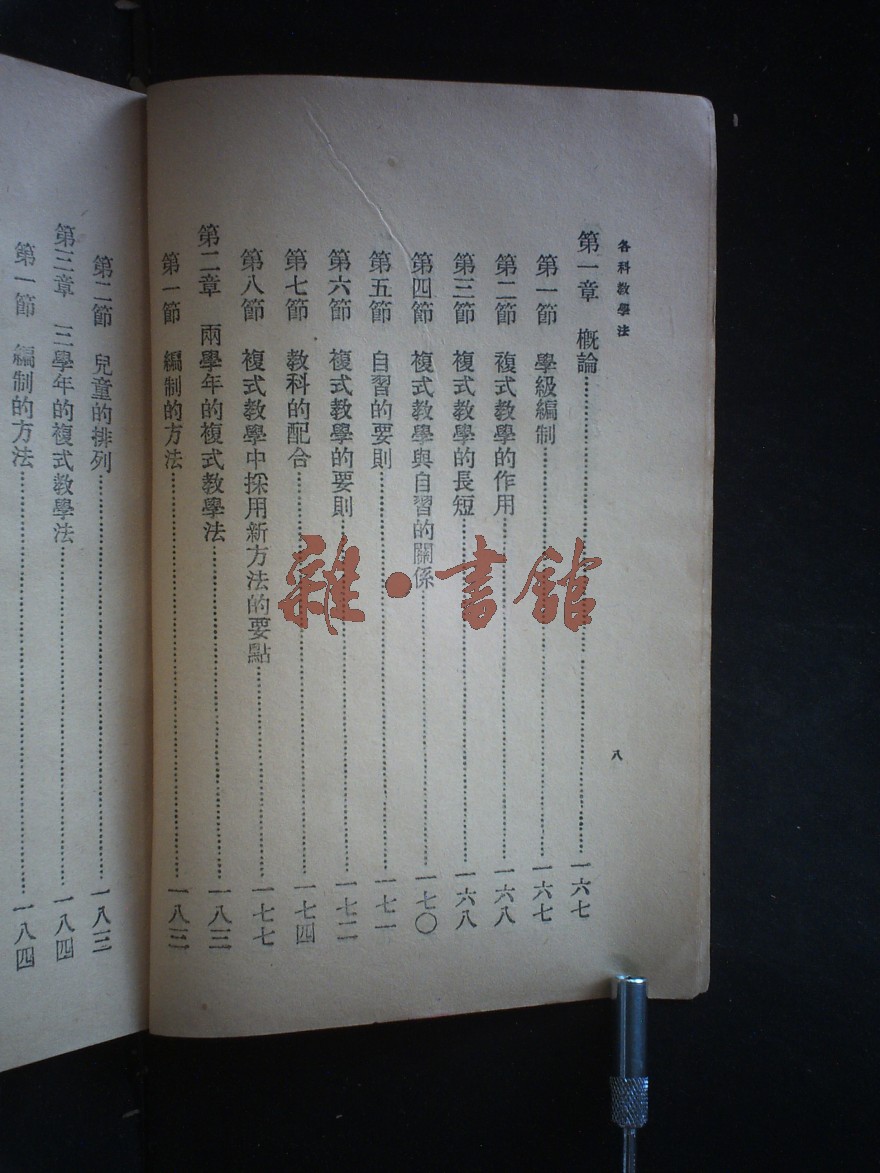 各科教學法
八
第一章　概論……一六七
第一節　學級編制……一六七
第二節　複式教學的作用……一六八
第三節　複式教學的長短……一六八
第四節　複式教學與自習的關係……一七〇
第五節　自習的要則……一七一
第六節　複式教學的要則……一七二
第七節　教科的配合……一七四
第八節　複式教學中採用新方法的要點……一七七
第二章　兩學年的複式教學法……一八三
第一節　編制的方法……一八三
第二節　兒童的排列……一八三
第三章　三學年的複式教學法……一八四
第一節　編制的方法……一八四
雜·書館